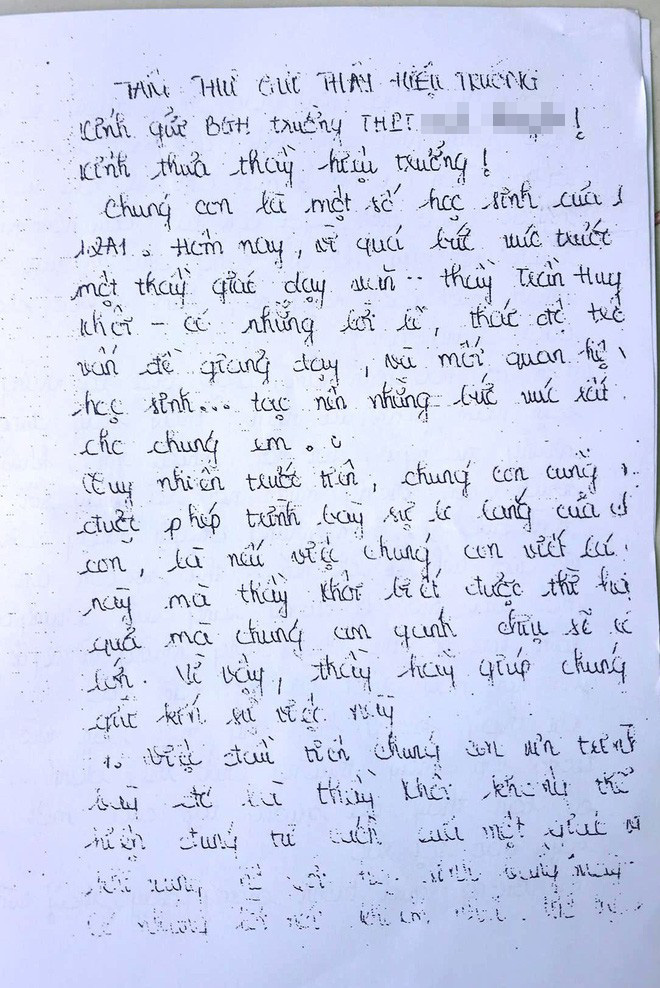 TÂM THƯ GỬI THẦY HIỆU TRƯỞNG
Kính gửi BGH trường THPT !
Kính thưa thầy hiệu trưởng !
Chúng con là một số học sinh của
12A1. Hôm nay, vì quá bức xúc trước
một thầy giáo dạy văn - thầy Trần Huy
Khôi - có những lời lẽ, thái độ
vấn đề giảng dạy, và mối quan hệ
học sinh... tạo nên những bức xúc
cho chúng em.
Tuy nhiên trước tiên, chúng con cũng
được phép trình bày sự lo lắng của
con, là nếu việc chúng con viết lá
này mà thầy Khôi biết được thì hậu
quả mà chúng con gánh chịu sẽ
lớn. Vì vậy, thầy hãy giúp chúng
giữ kín sự việc này
1. Việc đầu tiên chúng con xin trình
bày đó là thầy Khôi không thể
hiện đúng tư cách của một giáo
khi xưng